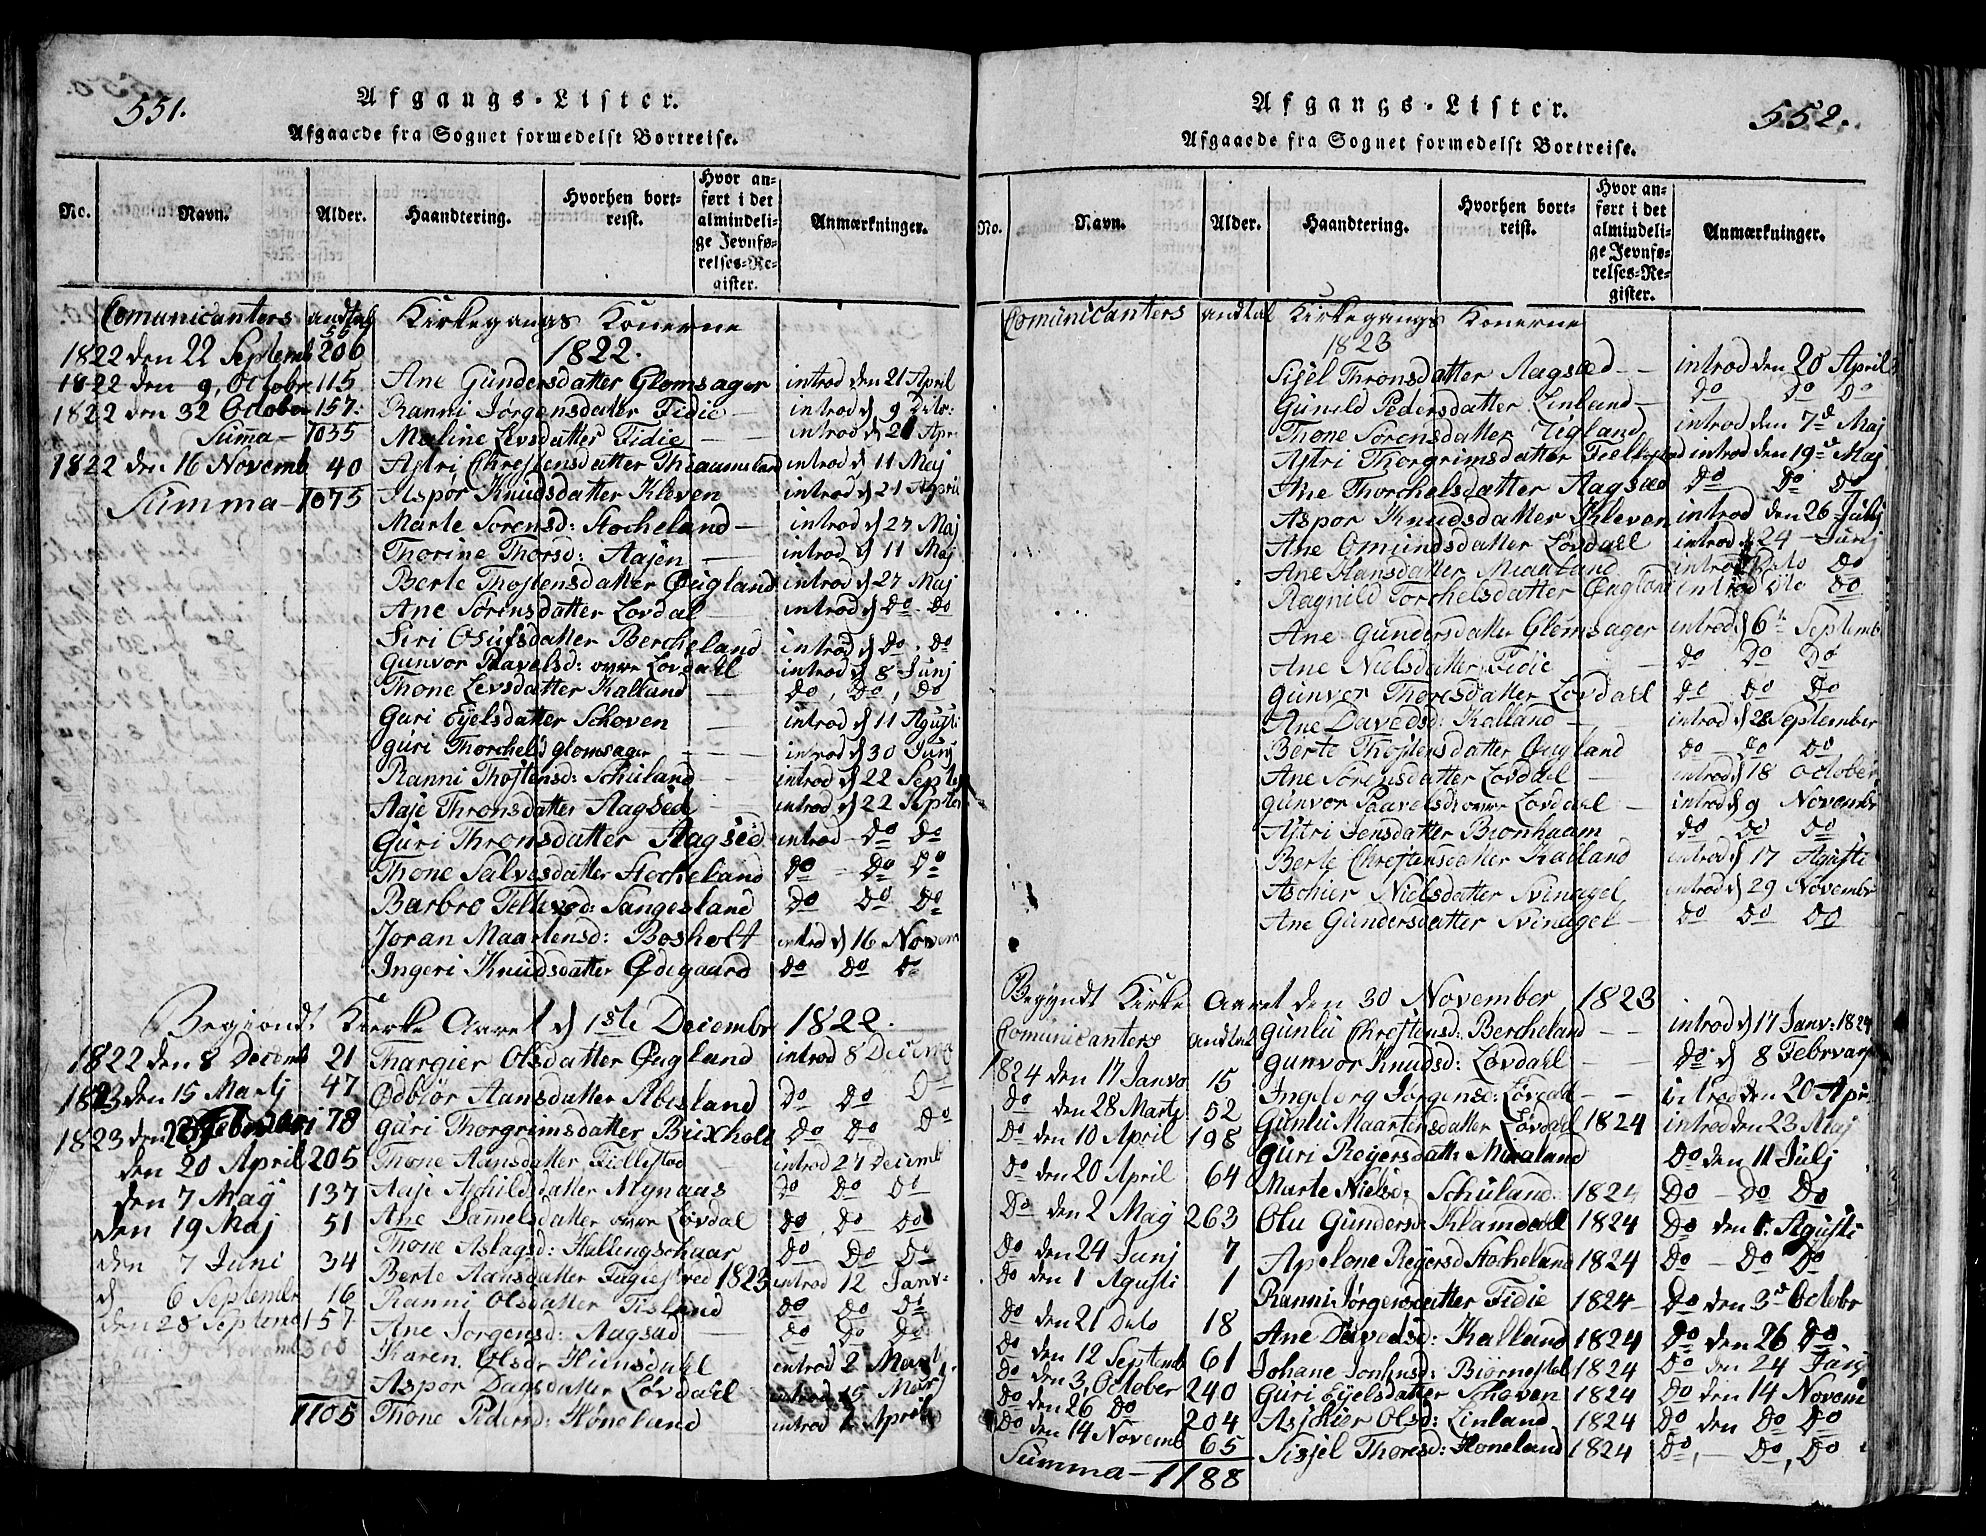 551.
Afgangs-Lister.
Afgaaede fra Sognet formedelst Bortreise.
No. Navn. Alder. Haandtering. Hvorhen bortreist. Hvor anført i det almindelige Jevnførelses-Register. Anmærkninger.
Comunicanters andtal Kirkegangs Konerne
55
1822 den 22 Septemb 206 1822.
1822 den 9, Octobre 115 Ane Gundersdatter Glomsager introd den 21 April
1822 den 32 October 157. Ranni Jørgensdatter Fidie introd d 9 Dito:
Summa 1035 Maline Levsdatter Fidie introd d 21 Apr
1822 den 16 Novemb 40 Astri Chrestensdatter Thiaumsland introd d 11 Maj
Summa 1075 Aspør Knudsdatter Kleven introd d 21 April
Marte Sorensd: Stocheland introd d 27 Maj
Thorine Thorsd: Aasen introd d 11 Maj
Berte Thostensdatter Øugland introd d 27 Maj
Ane Sørensdatter Lovdal introd d Do Do
Siri Osufsdatter Bercheland introd d Do Do
Gunvor Paavelsd: ovre Lovdahl introd d 8 Junj
Thone Levsdatter Kalland Do, Do, Do
Guri Eyelsdatter Schoven introd d 11 Agusti
Guri Thorchelsd glomsager introd d 30 Junj
Ranni Thostensd: Schuland introd d 22 Septe
Aaje Thronsdatter Aagsed introd d 22 Septem
Guri Thronsdatter Aagsed introd Do Do
Thone Salvesdatter Stocheland Do Do Do
Barbro Tellevsd: Sangesland Do Do Do
Joran Maartensd: Bosholt introd d 16 Novem
Ingeri Knudsdatter Ødegaard Do Do Do
Begiondt Kierke Aaret d 1ste Decembr 1822.
1822 den 8 Decemb 21 Thargier Olsdatter Øugland introd 8 Decemb
1823 den 15 Martj 47 Odbiør Aansdatter Abesland Do Do Do
1823 den 23 Februari 78 Guri Thorgrimsdatter Buxholt Do Do Do
den 20 April 205 Thone Aansdatter Fidlestad introd 27 Decemb
den 7 Maij 137 Aaje Aschildsdatter Mynaas Do Do Do
den 19 Maj 51 Ane Damelsdatter ovre Løvdal Do, Do Do
den 7 Juni 34 Thone Aslagsd: Hullingschaar Do Do Do
d 6 Septembr 16 Berte Aansdatter 1823 introd 12 Janv:
den 28 Septemb 157 Ranni Olsdatter Tisland Do Do Do
Novemb 300 Ane Jorgensd: Aagsad Do Do Do
59 Karen Olsdr Hunsdahl introd 2 Mart
Aspør Dagsdatter Løvdahl introd 15 Mart
1105 Thone Pedersd: Høneland introd 2 April
552.
Afgangs-Lister.
Afgaaede fra Sognet formedelst Bortreise.
No. Navn. Alder. Haandtering. Hvorhen bortreist. Hvor anført i det almindelige Jevnførelses-Register. Anmærkninger.
Comunicanters andtal Kirkegangs Konerne
1823
Sisel Thronsdatter Aagsæd introd den 20 April
Gunild Pedersdatter Linland Do Do Do
Thone Sorensdatter Ugland introd den 7d Maj
Astri Thorgrimsdatter Fiellestad introd den 19d Maj
Ane Thorchelsdatter Aagsæd Do Do Do
Aspor Knudsdatter Kleven introd den 26 Julij
Ane Omundsdatter Løvdall introd d 24 Junj
Ane Hansdatter Mianland introd Dito Do
Ragnild Torchelsdatter Øugland introd Dito Do
Ane Gundersdatter Glomsager introd d 6te Septemb
Ane Nielsdatter Fidie Do Do Do
Gunvor Thoresdatter Lovdahl Do Do Do
Ane Davedsd: Kalland introd d 28 September
Berte Thostensdatter Øugland Do Do Do
Ane Sorensdatter Lovdal introd d 18 October
gunvor Paavelsd: ovre Lovdahl introd d 9 Novembr
Astri Jensdatter Bionhaam Do Do Do
Berte Chrestensdatter Kalland introd d 17 Agusti
Aschier Nielsdatter Svinagel introd d 29 Novembr
Ane Gundersdatter Svinagel Do Do Do
Begyndt Kirke Aaret den 30 November 1823
Comunicanters andtal Gunlu Chrestensd: Bercheland introd d 17 Janv: 1824
1824 den 17 Janva 15 gunvor Knudsd: Løvdahl Do d 8 Februar
Do den 28 Marti 52 Ingeborg Jørgensd: Løvdahl introd den 20 Apr:
Do den 10 April 198 Gunlu Maartensdatter Løvdahl 1824 introd den 23 Maj
Do den 20 April 64 Guri Reyersdatt: Mialand Do den 11 Julj
Do den 2 Maij 263 Marte Nielsd: Schuland: 1824 Do Do Do
Do den 24 Junj 7 Olu Gundersd: Klamdahl 1824 Do den 1. Agusti
Do den 1 Agusti 1 Apelone Reyersd Stocheland 1824 Do Do Do
Do den 21 Dito 18 Ranni Jørgensdatter Fidie 1824 Do den 3d Octobr
Do den 12 Septemb 61 Ane Davedsd: Kalland 1824 Do den 26 Do
Do den 3, October 240 Johane Jonsensd: Biørnestøl 1824 Do den 24
Do den 26, Do 204 Guri Eyelsdatter Schoven 1824 Do den 14 Novem
Do den 14 Novemb 65 Aschier Olsd: Linland 1824 Do den Do Do
Summa 1188 Sissel Thoresd: Honeland 1824 Do, Do, Do